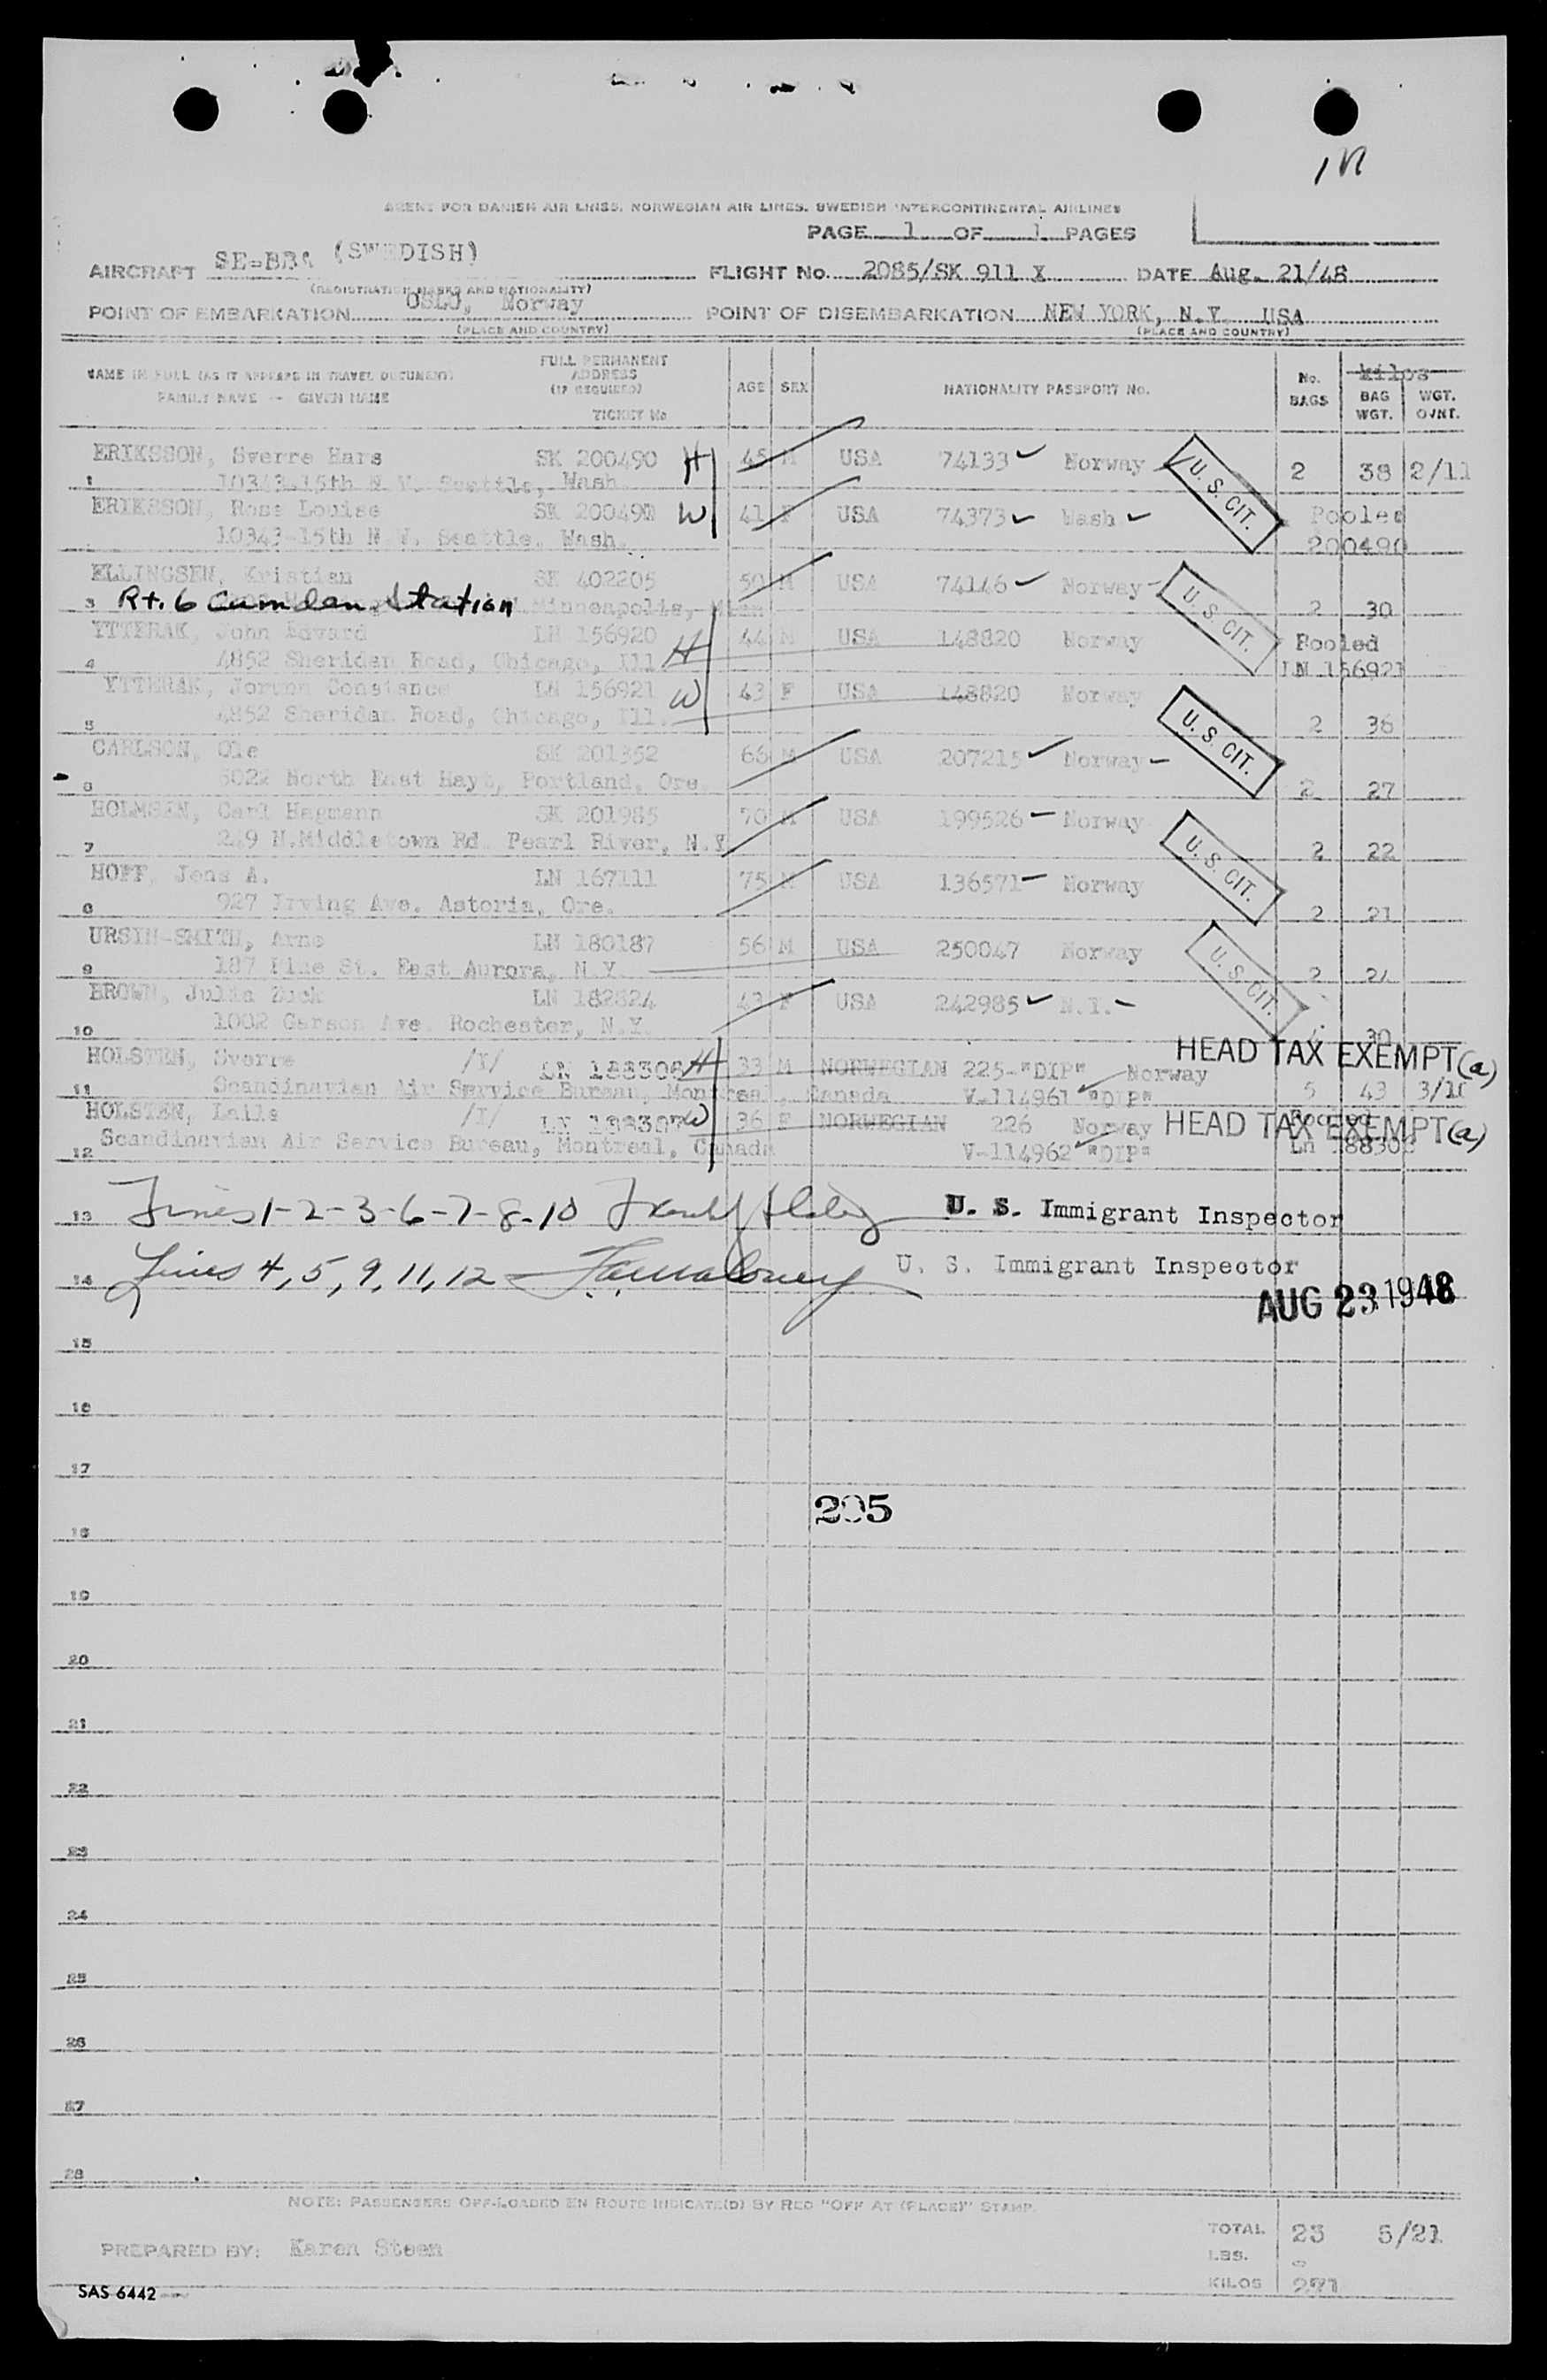 1
AGENT FOR DANISH AIR LINES, NORWEGIAN AIR LINES, SWEDISH INTERCONTINENTAL AIRLINES
PAGE 1 OF 1 PAGES
AIRCRAFT SE-BBA (SWEDISH) FLIGHT No. 2085/SK 911 X DATE Aug. 21/48
(REGISTRATION MARKS AND NATIONALITY)
POINT OF EMBARKATION OSLO, Norway POINT OF DISEMBARKATION NEW YORK, N.Y. USA
(PLACE AND COUNTRY) (PLACE AND COUNTRY)
NAME IN FULL (AS IT APPEARS IN TRAVEL DOCUMENT) FAMILY NAME -- GIVEN NAME FULL PERMANENT ADDRESS (IF REQUIRED) TICKET No AGE SEX NATIONALITY PASSPORT No. No. BAGS Kilos BAG WGT. WGT. OVNT.
ERIKSSON, Sverre Hans SK 200490 H 45 M USA 74133 Norway U. S. CIT. 2 38 2/11
1 10343-15th N.W. Seattle, Wash.
ERIKSSON, Rose Louise SK 200491 W 41 F USA 74373 Wash Pooled
10343-15th N.W. Seattle, Wash. 200490
ELLINGSEN, Kristian SK 402205 50 M USA 74146 Norway U. S. CIT.
3 Rt. 6 Camden Station Minneapolis, Minn 2 30
YTTERAK, John Edvard LN 156920 44 M USA 148820 Norway Pooled
4 4852 Sheridan Road, Chicago, Ill H LN 156921
YTTERAK, Jorunn Constance LN 156921 W 43 F USA 148820 Norway U. S. CIT.
5 4852 Sheridan Road, Chicago, Ill. 2 36
CARLSON, Ole SK 201352 66 M USA 207215 Norway
6 6022 North East Hayt, Portland, Ore. 2 27
HOLMSEN, Carl Hagmann SK 201985 70 M USA 199526 Norway U. S. CIT.
7 249 N.Middletown Rd. Pearl River, N.Y. 2 22
HOFF, Jens A. LN 167111 75 M USA 136571 Norway
8 927 Irving Ave. Astoria, Ore. 2 21
URSIN-SMITH, Arne LN 180187 56 M USA 250047 Norway U. S. CIT.
9 187 Pine St. East Aurora, N.Y. 2 24
BROWN, Julia Zuck LN 182824 43 F USA 242985 N.Y.
10 1002 Garson Ave. Rochester, N.Y. 30
HOLSTEN, Sverre /I/ LN 188306 H 33 M NORWEGIAN 225-"DIP" Norway HEAD TAX EXEMPT (a)
11 Scandinavian Air Service Bureau, Montreal, Canada V-114961 "DIP" 5 43 3/10
HOLSTEN, Laila /I/ LN 188307 W 36 F NORWEGIAN 226 Norway HEAD TAX EXEMPT (a) Pooled
12 Scandinavian Air Service Bureau, Montreal, Canada V-114962 "DIP" Ln 188306
13 Lines 1-2-3-6-7-8-10 U. S. Immigrant Inspector
14 Lines 4, 5, 9, 11, 12 U. S. Immigrant Inspector
AUG 23 1948
15
16
17
205
18
19
20
21
22
23
24
25
26
27
28
NOTE: PASSENGERS OFF-LOADED EN ROUTE INDICATE(D) BY RED "OFF AT (PLACE)" STAMP.
PREPARED BY: Karen Steen TOTAL 23 5/21
LBS.
KILOS 271
SAS 6442